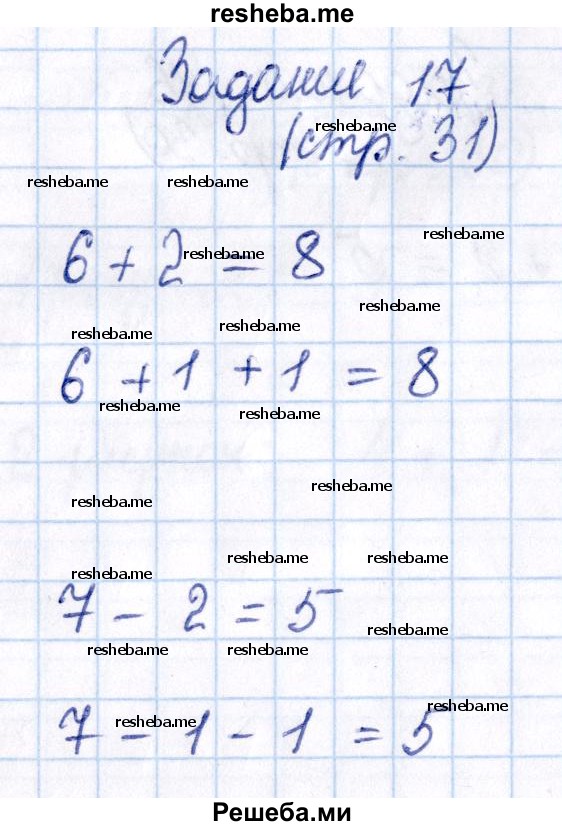 resheba.me
Задание 17
(стр. 31)
resheba.me
resheba.me resheba.me
resheba.me
6 + 2 = 8
resheba.me
resheba.me
resheba.me resheba.me
6 + 1 + 1 = 8
resheba.me resheba.me
resheba.me
resheba.me
resheba.me resheba.me
resheba.me
7 - 2 = 5
resheba.me
resheba.me resheba.me
resheba.me
7 - 1 - 1 = 5
resheba.me
Решеба.ми